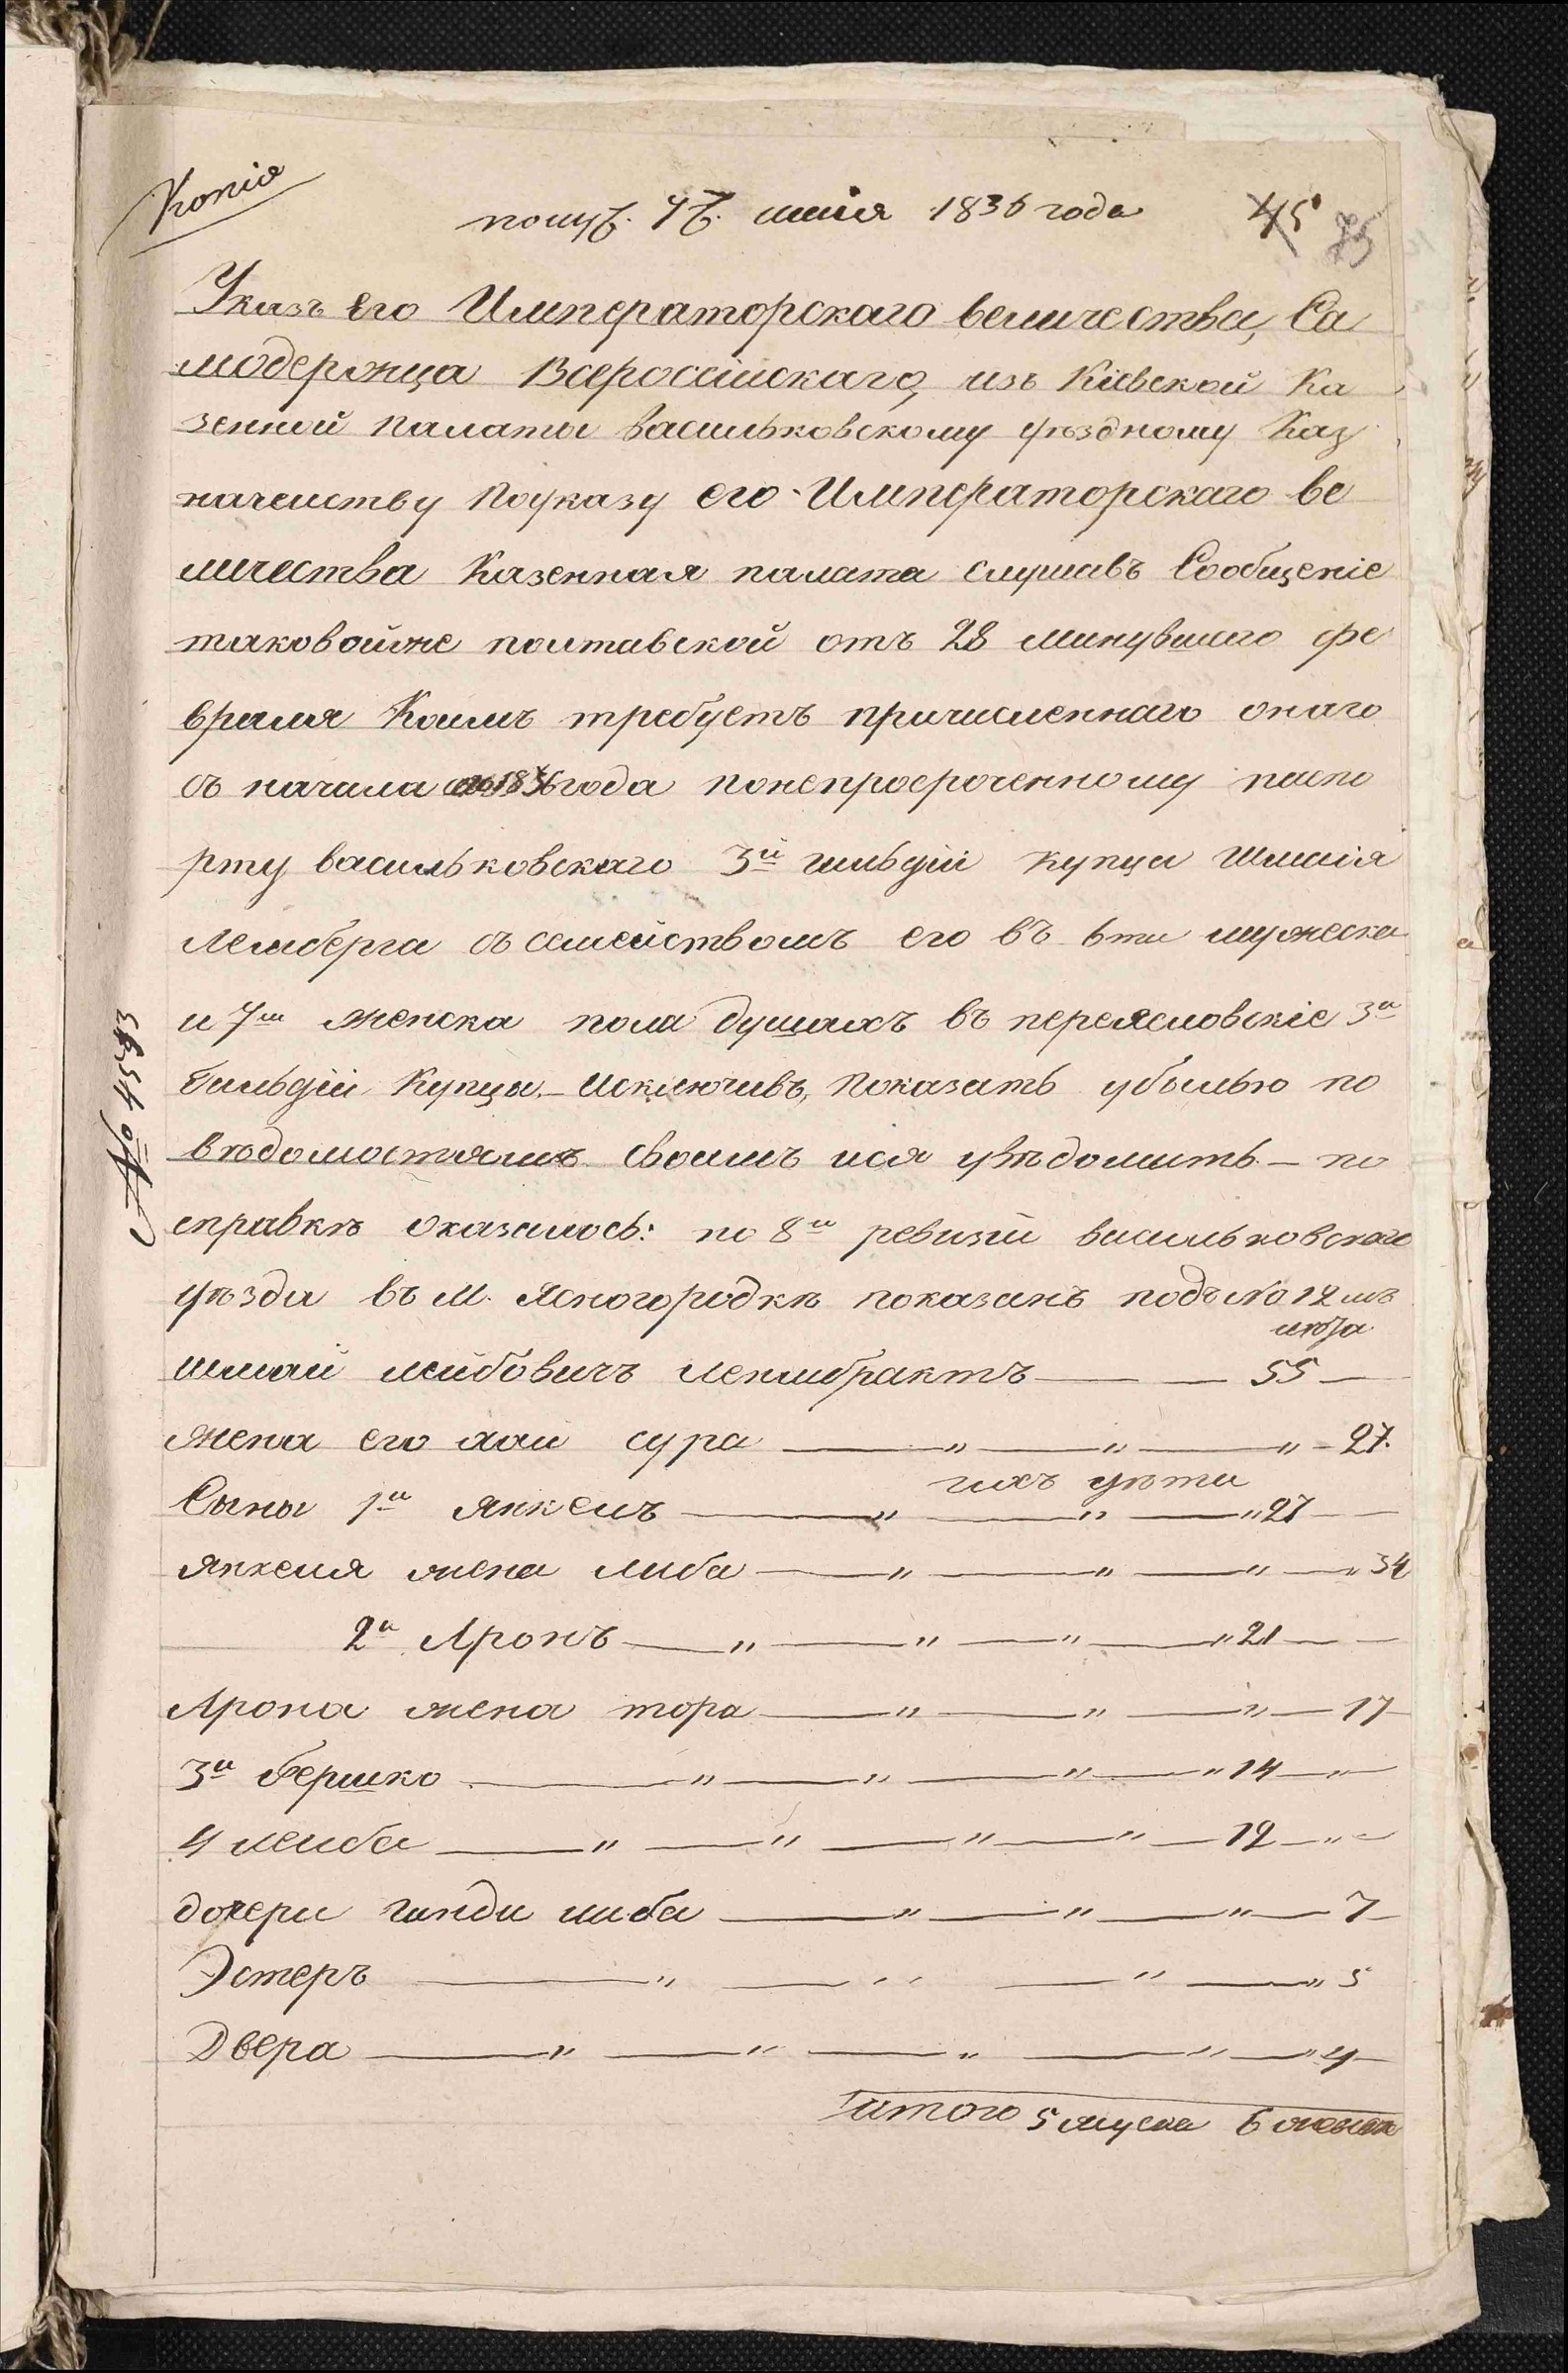 Копія
получ. 4 іюня 1836 года 45 75
Указъ его Императорскаго величества, Са
модержца Всероссійскаго, изъ Кіевской Ка
зенной палаты васильковскому уѣздному Каз
начейству Поуказу его Императорскаго ве
личества Казенная палата слушавъ Сообщеніе
таковойже полтавской отъ 28 минувшаго фе
враля Коимъ требуетъ причисленнаго онаго
съ начала 1836 года понепросроченному паспо
рту васильковскаго 3й гильдіи купца Шмаія
Лемберга съ семействомъ его въ 6ти мужеска
и 7ми женска пола душахъ въ переясловскіе 3й
Гильдіи Купцы.— Исключивъ, показать убылью по
вѣдомостямъ своимъ ися увѣдомить — по
справкѣ оказалось: по 8й ревизіи васильковскаго
уѣзда въ М. Ясногородкѣ показанъ подъ № 12мъ
лѣта
шмай лейбовичъ лемибрактъ — — 55 —
жена его хаи сура — „ — „ — „ — 27.
ихъ дѣти
Сыны 1й янкель — „ — „ — „ 27 — —
янкеля жена либа — „ — „ — „ — „ 34
2й Аронъ — „ — „ — „ — „ 21 — —
Арона жена тора — „ — „ — „ — 17 —
3й бершко — „ — „ — „ — „ 14 — „ —
4 лейба — „ — „ — „ — „ — 12 — „ —
дочери гинди либа — „ — „ — „ — 7 —
Эстеръ — „ — „ — „ — „ 5
Двера — „ — „ — „ — „ — „ 4 —
итого 5 мужска 6 женск
№ 4593